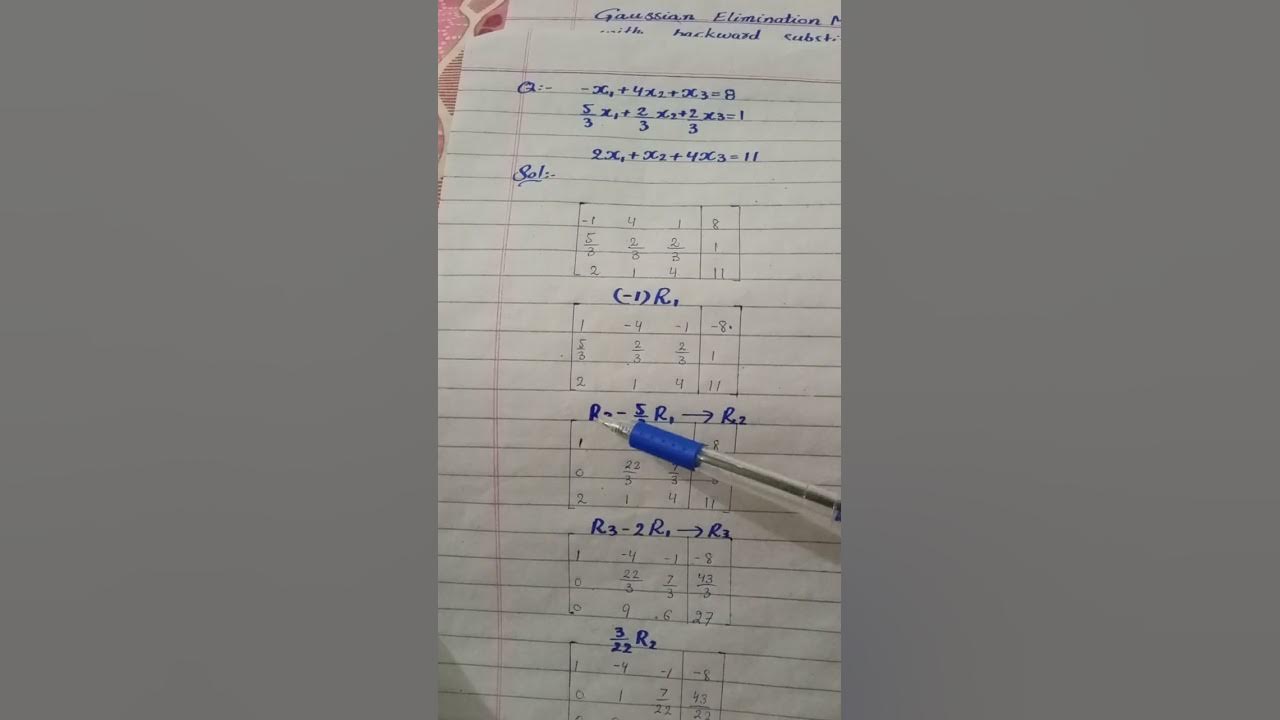 Gaussian Elimination
with backward
Q:- -x₁+4x₂+x₃=8
5/3 x₁+2/3 x₂+2/3 x₃=1
2x₁+x₂+4x₃=11
Sol:-
-1 4 1 | 8
5/3 2/3 2/3 | 1
2 1 4 | 11
(-1)R₁
1 -4 -1 | -8
5/3 2/3 2/3 | 1
2 1 4 | 11
R₂- 5/ R₁ → R₂
1 8
0 22/3 7/3
2 1 4 | 11
R₃-2R₁→R₃
1 -4 -1 | -8
0 22/3 7/3 | 43/3
0 9 6 | 27
3/22 R₂
1 -4 -1 | -8
0 1 7/22 | 43/22